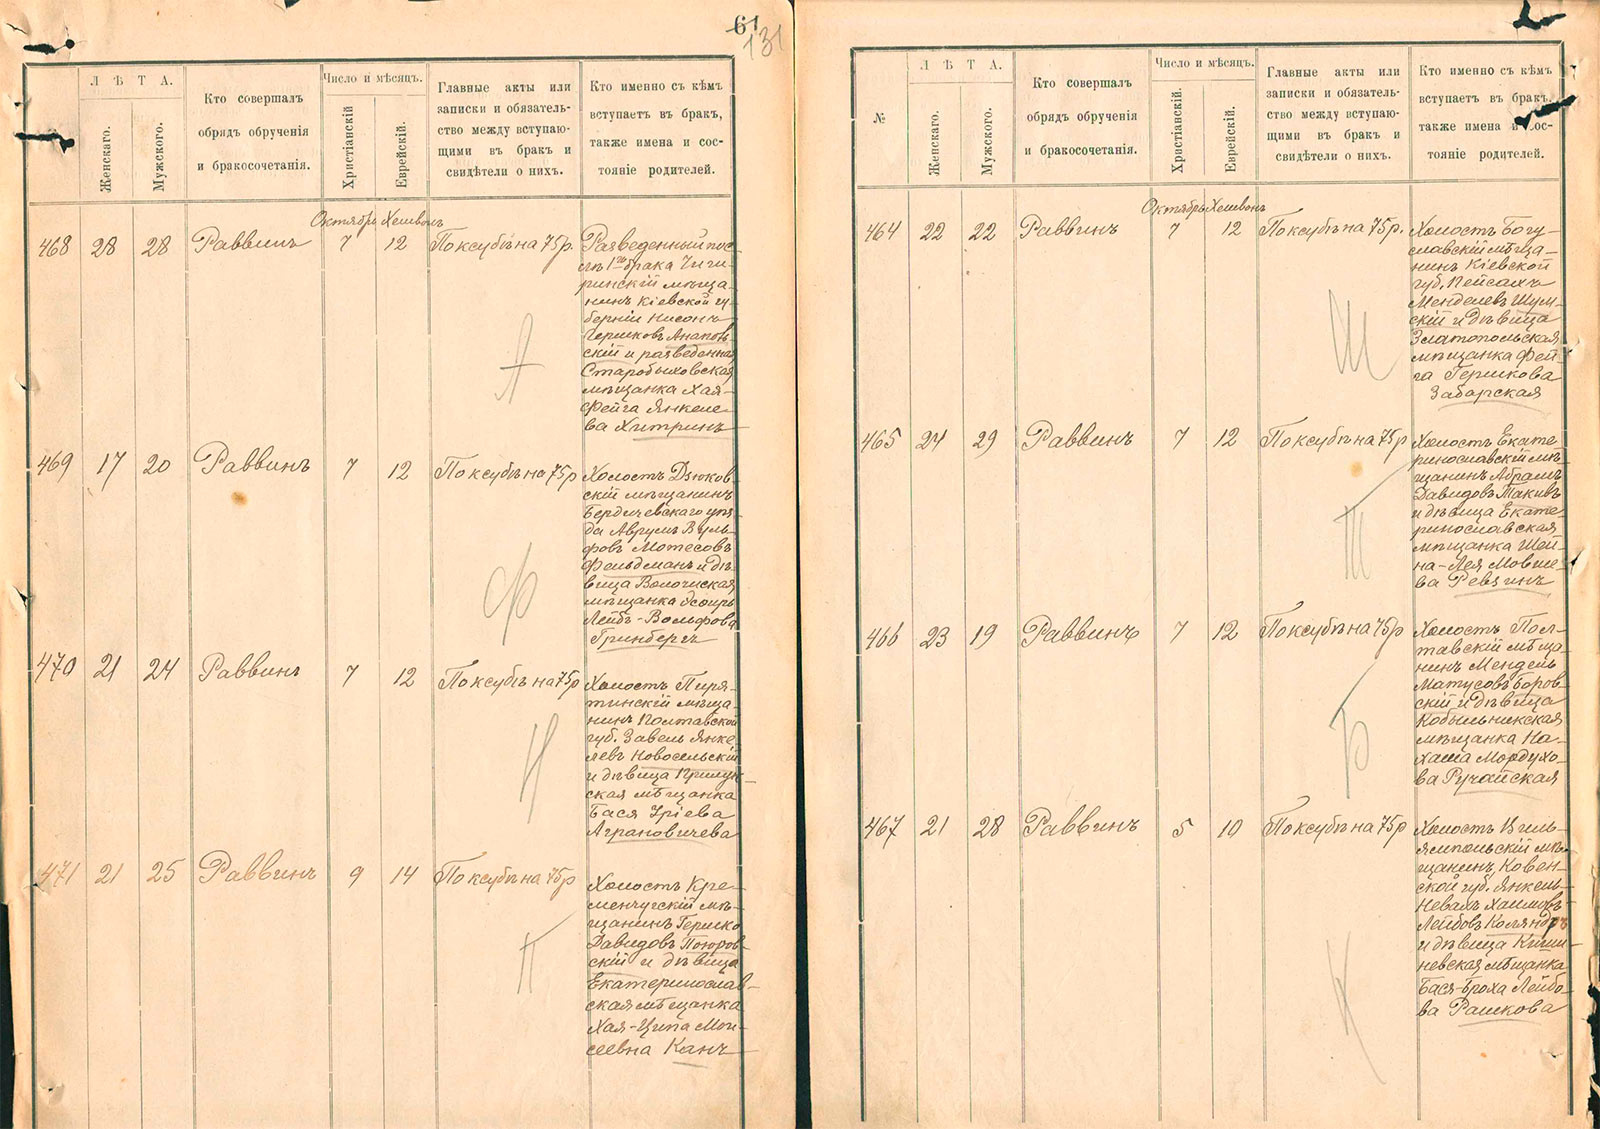 61
131
ЛѢТА.
Женскаго.
Мужского.
Кто совершалъ
обрядъ обрученія
и бракосочетанія.
Число и мѣсяцъ.
Христіанскій
Еврейскій.
Главные акты или
записки и обязатель-
ство между вступаю-
щими въ бракъ и
свидѣтели о нихъ.
Кто именно съ кѣмъ
вступаетъ въ бракъ,
также имена и сос-
тояніе родителей.
Октябрь Хешвонъ
468 28 28 Раввинъ 7 12 По ксубѣ на 75 р.
Разведенный пос-
лѣ 1го брака Чиги-
ринскій мѣща-
нинъ Кіевской гу-
берніи Нисонъ
Гершковъ Анапов-
скій и разведенная
Старобыховская
мѣщанка Хая-
Фейга Янкеле-
ва Хитринъ
А
469 17 20 Раввинъ 7 12 По ксубѣ на 75 р
Холостъ Дзюков-
скій мѣщанинъ
Бердичевскаго уѣз-
да Аврумъ Вуль-
фовъ Мотесовъ
Фельдманъ и дѣ-
вица Волочиская
мѣщанка Эсѳирь
Лейбъ-Вольфова
Гринбергъ
Ф
470 21 24 Раввинъ 7 12 По ксубѣ на 75 р
Холостъ Пиря-
тинскій мѣща-
нинъ Полтавской
губ. Завель Янке-
левъ Новосельскій
и дѣвица
ская мѣщанка
Бася Уріева
Аграновичева
Н
471 21 25 Раввинъ 9 14 По ксубѣ на 75 р
Холостъ Кре-
менчугскій мѣ-
щанинъ Гершко
Давидовъ
скій и дѣвица
Екатеринослав-
ская мѣщанка
Хая-Ципа Мои-
сеевна Канъ
П
№
ЛѢТА.
Женскаго.
Мужского.
Кто совершалъ
обрядъ обрученія
и бракосочетанія.
Число и мѣсяцъ.
Христіанскій.
Еврейскій.
Главные акты или
записки и обязатель-
ство между вступаю-
щими въ бракъ и
свидѣтели о нихъ.
Кто именно съ кѣмъ
вступаетъ въ бракъ,
также имена и сос-
тояніе родителей.
Октябрь Хешвонъ
464 22 22 Раввинъ 7 12 По ксубѣ на 75 р.
Холостъ Богу-
славскій мѣща-
нинъ Кіевской
губ. Пейсахъ
Менделевъ Шум-
скій и дѣвица
Златопольская
мѣщанка Фей-
га Гершкова
Забарская
Ш
465 24 29 Раввинъ 7 12 По ксубѣ на 75 р
Холостъ Екате-
ринославскій мѣ-
щанинъ Абрамъ
Давидовъ Такивъ
и дѣвица Екате-
ринославская
мѣщанка Шей-
на-Лея Мовше-
ва Ревзинъ
Т
466 23 19 Раввинъ 7 12 По ксубѣ на 75 р
Холостъ Пол-
тавскій мѣща-
нинъ Мендель
Матусовъ Боров-
скій и дѣвица
Кобыльникская
мѣщанка На-
хама Мордухо-
ва Ручайская
Б
467 21 28 Раввинъ 5 10 По ксубѣ на 75 р
Холостъ Виль-
ямпольскій мѣ-
щанинъ, Ковен-
ской губ. Янкель-
Невахъ Хаимовъ-
Лейбовъ Коляндръ
и дѣвица Киши-
невская мѣщанка
Бася-Броха Лейбо-
ва Рашкова
К